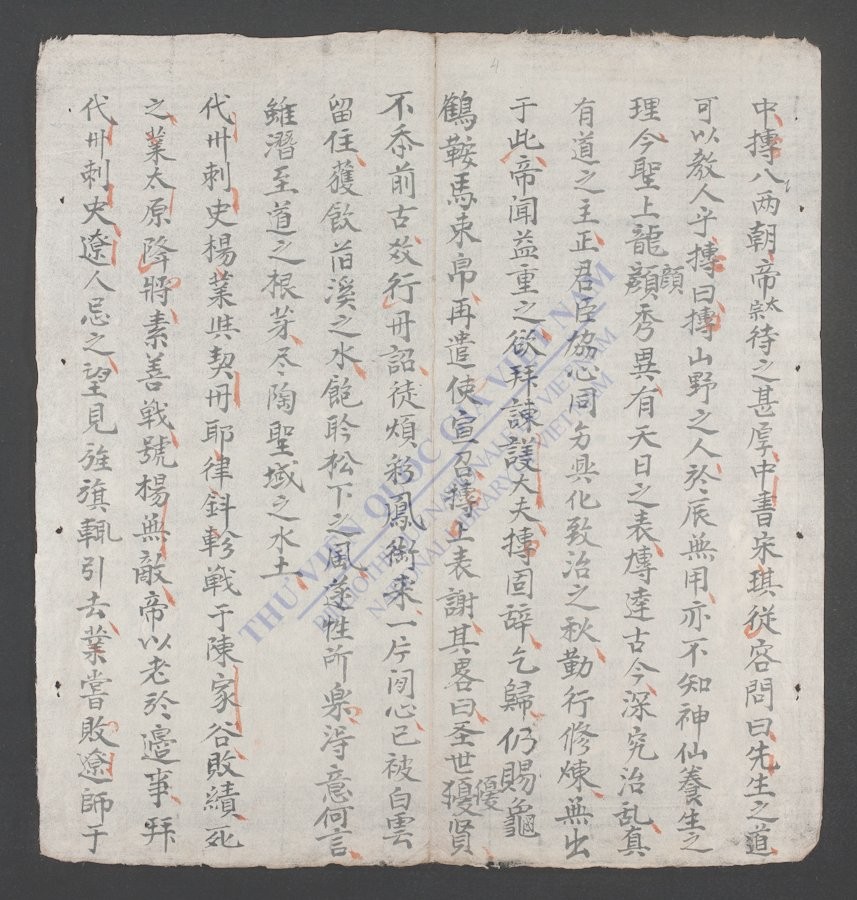 中摶八両朝帝太宗待之甚厚中書宋琪從容問曰先生之道
可以教人乎摶曰摶山野之人於辰無用亦不知神仙養生之
理今聖上龍顔顔秀異有天日之表慱達古今深究治乱真
有道之主正君臣協心同𠫵興化致治之秋勤行修煉無出
于此帝闻益重之欲拜諫議大夫摶固辞乞歸仍賜龜
鶴鞍馬束帛再遣使宣召摶上表謝其畧曰圣世優優贤
不忝前古效行冊詔徒煩彩鳳銜来一片闲心已被白雲
留住獲飲旧溪之水飽聆松下之風遂性所樂得意何言
雖潛至道之根芽尽陶聖域之水土
代州刺史楊業與契丹耶律斜軫戰于陳家谷敗績死
之業太原降將素善戰號楊無敵帝以老於邊事拜
代州刺史遼人忌之望見旌旗輒引去業嘗敗遼師于
4
THƯ VIỆN QUỐC GIA VIỆT NAM
BIBLIOTHÈQUE NATIONALE DU VIETNAM
NATIONAL LIBRARY OF VIETNAM